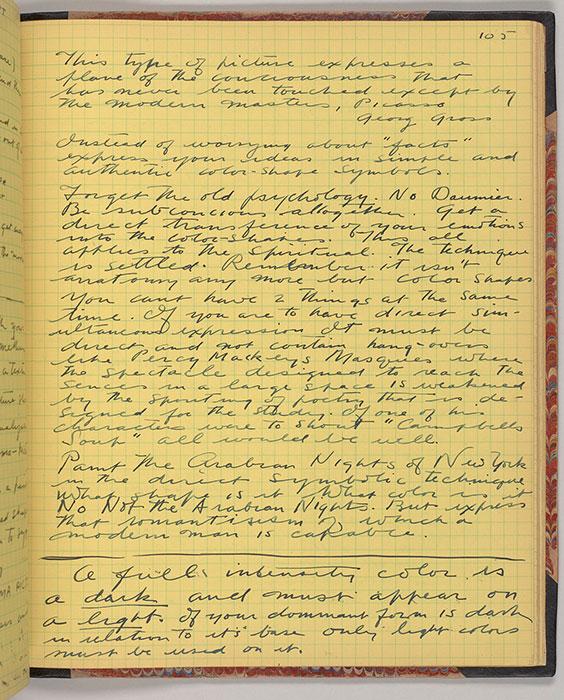 105
This type of picture expresses a
plane of the conciousness that
has never been touched except by
the modern masters, Picasso
Georg Gross
Instead of worrying about "facts"
express your ideas in simple and
authentic color-shape symbols.
Forget the old psychology. No Daumier.
Be subconcious altogether. Get a
direct transference of your emotions
into the color-shapes. This all
applies to the Spiritual. The technique
is settled. Remember it isn't
anatomy any more but color shapes
You cant have 2 things at the same
time. If you are to have direct sim-
ultaneous expression It must be
direct and not contain hang-overs
like Percy Mackeys Masques where
the spectacle designed to reach the
sences in a large space is weakened
by the spouting of poetry that is de-
signed for the study. If one of his
characters were to shout "Campbells
Soup" all would be well.
Paint the Arabian Nights of New York
in the direct symbolic technique
What shape is it What color is it
No Not the Arabian Nights. But express
that romantisism of which a
modern man is capable.
A full intensity color is
a dark and must appear on
a light. If your dominant form is dark
in relation to its base only light colors
must be used on it.